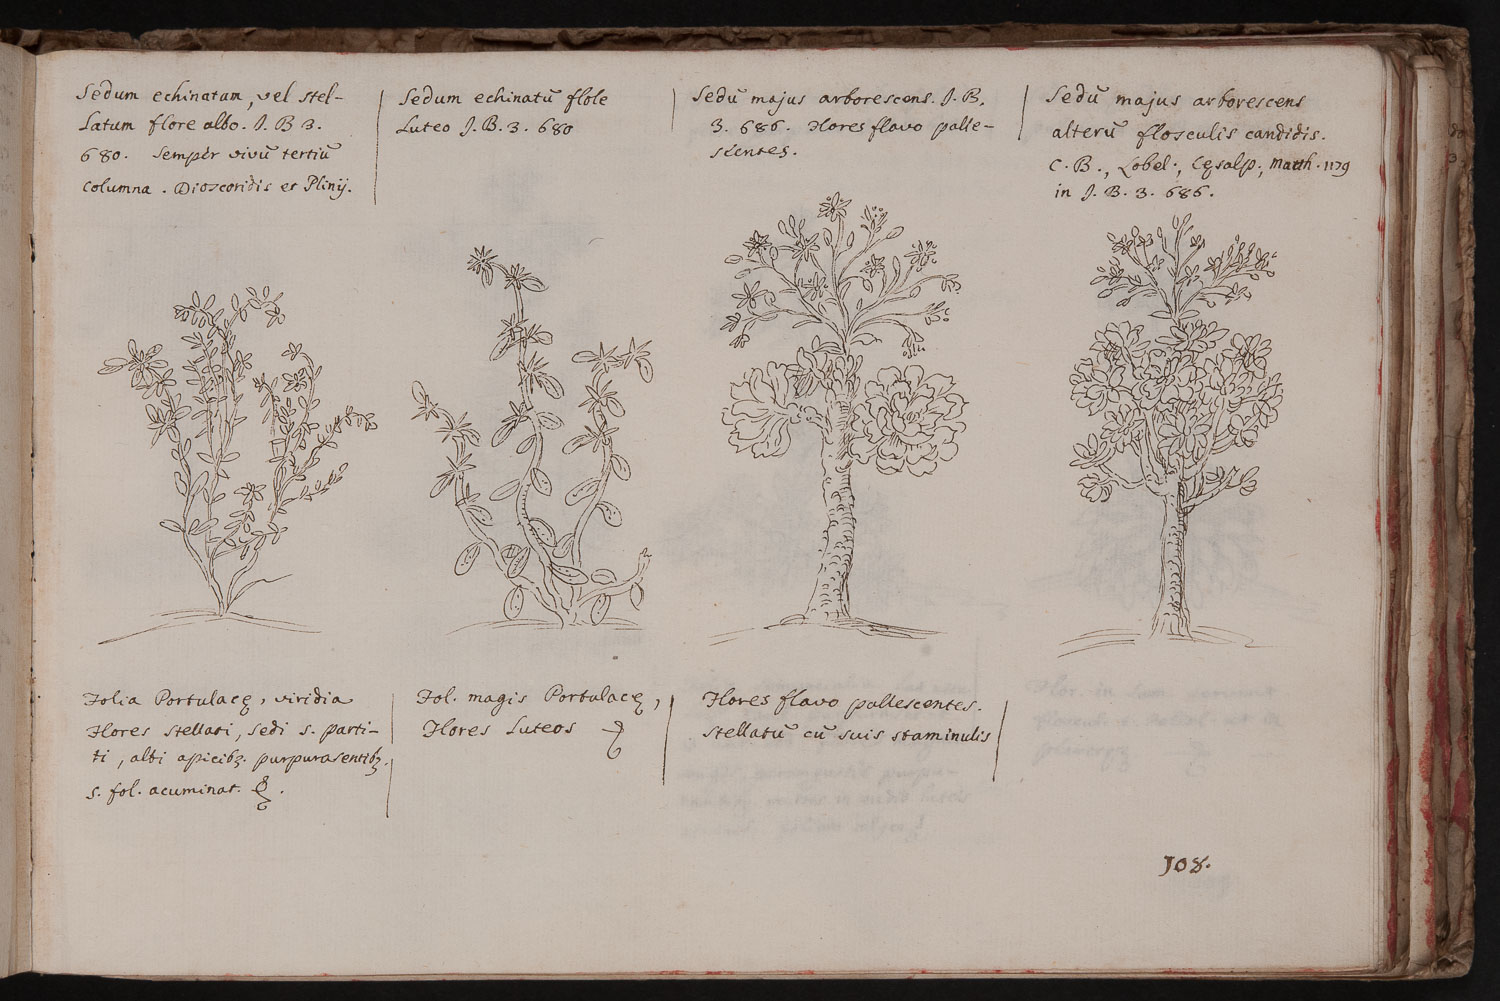 Sedum echinatam, vel stel-
latum flore albo. J. B 3.
680. Semper vivũ tertiũ
Columna. Dioscoridis et Plinij.
Sedum echinatũ flole
Luteo J. B. 3. 680
Sedũ majus arborescens. J. B.
3. 686. Flores flavo palle-
scentes.
Sedũ majus arborescens
alterũ flosculis candidis.
C. B., Lobel., Cęsalp., Matth. 1179
in J. B. 3. 686.
Folia Portulacę, viridia
Flores stellati, sedi s. parti-
ti, albi apicibꝫ. purpurasentibꝫ.
s. fol. acuminat.
Fol. magis Portulacę,
Flores Luteos
Flores flavo pallescentes.
stellatũ cũ suis staminulis
108.